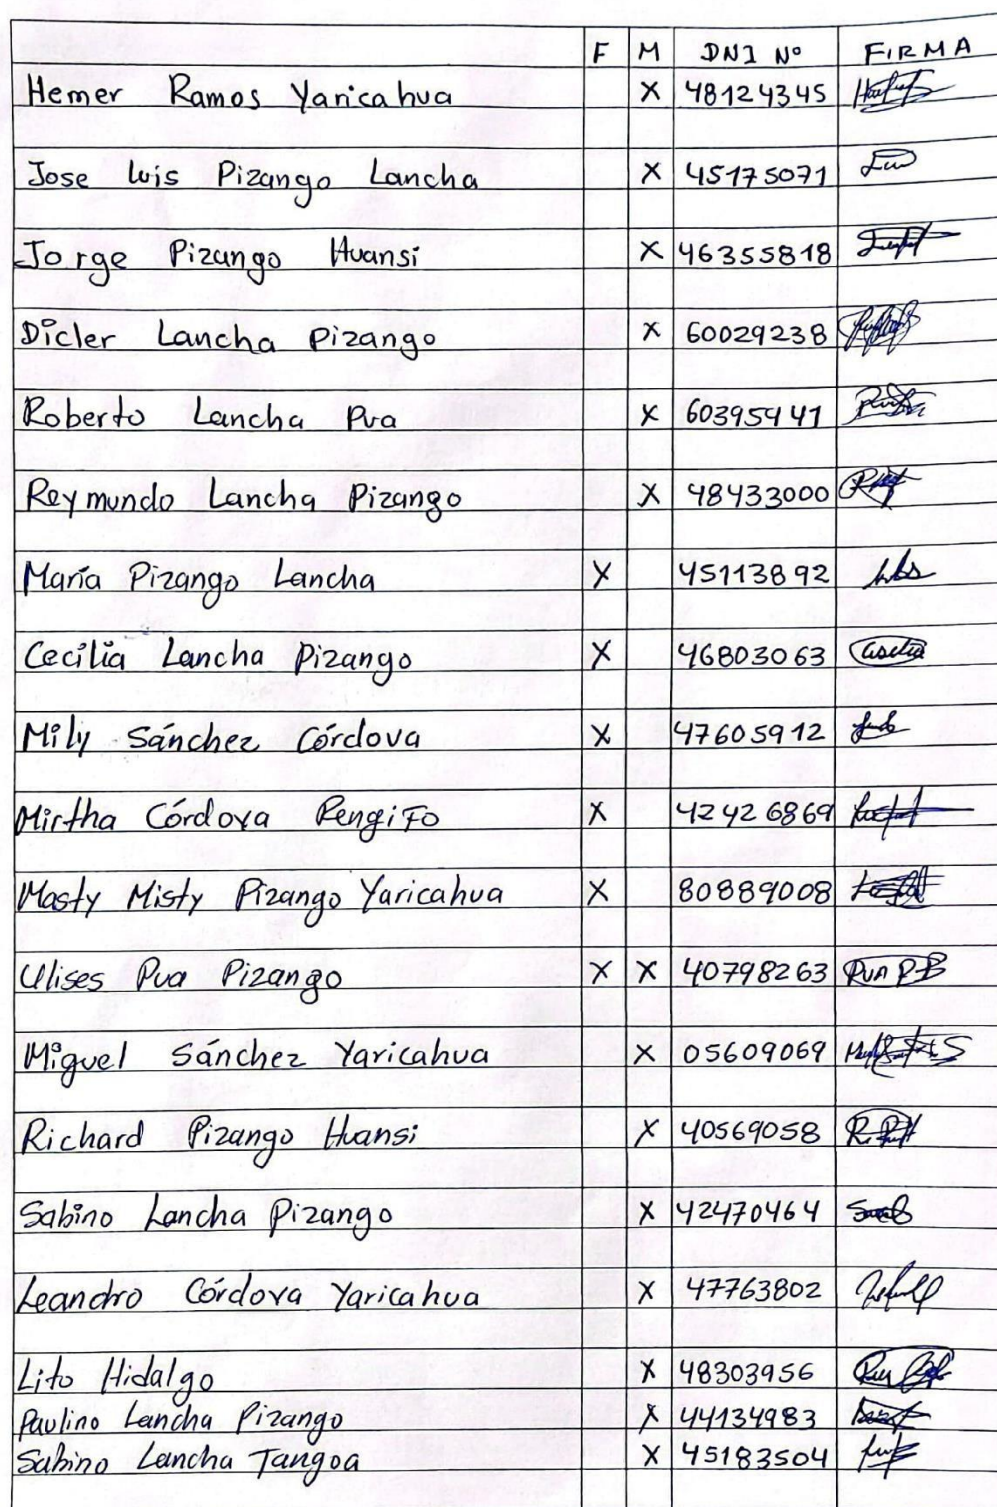 F M DNI Nº FIRMA
Hemer Ramos Yaricahua X 48124345
Jose Luis Pizango Lancha X 45175071
Jorge Pizango Huansi X 46355818
Dicler Lancha Pizango X 60029238
Roberto Lancha Pua X 60395941
Reymundo Lancha Pizango X 48433000
María Pizango Lancha X 45113892
Cecilia Lancha Pizango X 46803063
Mily Sánchez Córdova X 47605912
Mirtha Córdova RengiFo X 42426869
Masty Misty Pizango Yaricahua X 80889008
Ulises Pua Pizango X X 40798263
Miguel Sánchez Yaricahua X 05609069
Richard Pizango Huansi X 40569058
Sabino Lancha Pizango X 42470464
Leandro Córdova Yaricahua X 47763802
Lito Hidalgo X 48303956
Paulino Lancha Pizango X 44134983
Sabino Lancha Tangoa X 45183504